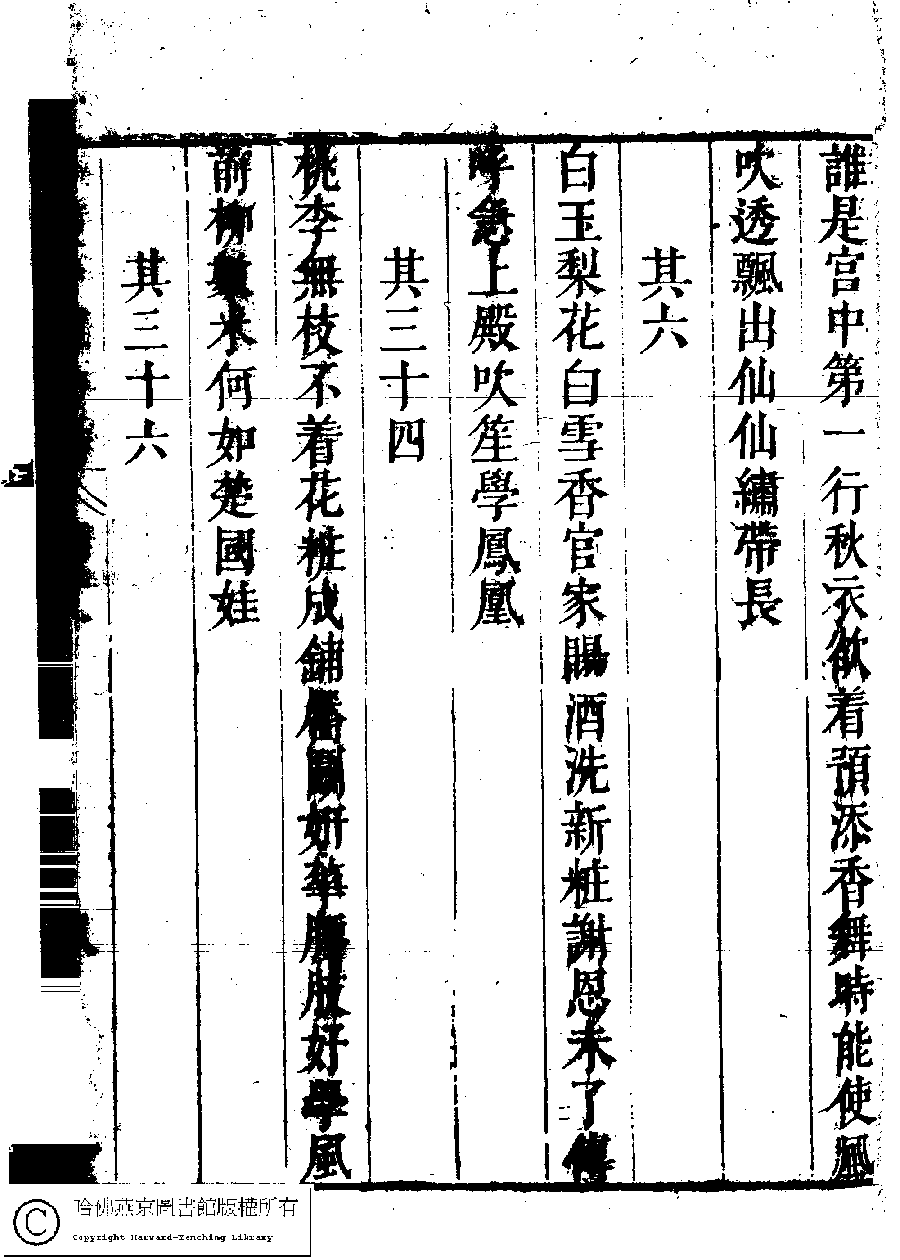 誰是宫中第一行秋衣欲着預添香舞時能使風
吹透飄出仙仙繡帶長
其六
白玉梨花白雪香官家賜酒洗新粧謝恩未了傳
呼急上殿吹笙學鳳凰
其三十四
桃李無枝不着花粧成鋪 鬭妍華 肢好學風
前柳 木何如楚國娃
其三十六
哈佛燕京圖書館版權所有
Copyright Harvard-Yenching Library